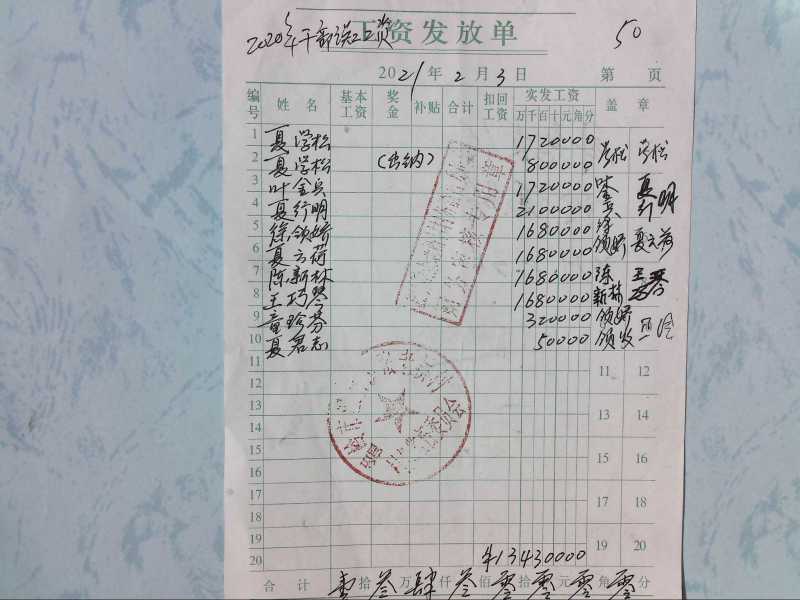 2020年干部误工资
工资发放单
50
2021年2月3日 第 页
编号 姓名 基本工资 奖金 补贴 合计 扣回工资 实发工资 盖章
万千百十元角分
1 夏学松 1720000
2 夏学松 (出纳) 800000
3 叶金兵 1720000
4 夏行明 2100000
5 徐领娇 1680000
6 夏云荷 1680000
7 陈新林 1680000
8 王巧琴 1680000
9 童玲芬 320000
10 夏君志 50000
11 11 12
12
13 13 14
14
15 15 16
16
17 17 18
18
19 19 20
20 ¥13430000
合计 壹拾叁万肆仟叁佰零拾零元零角零分